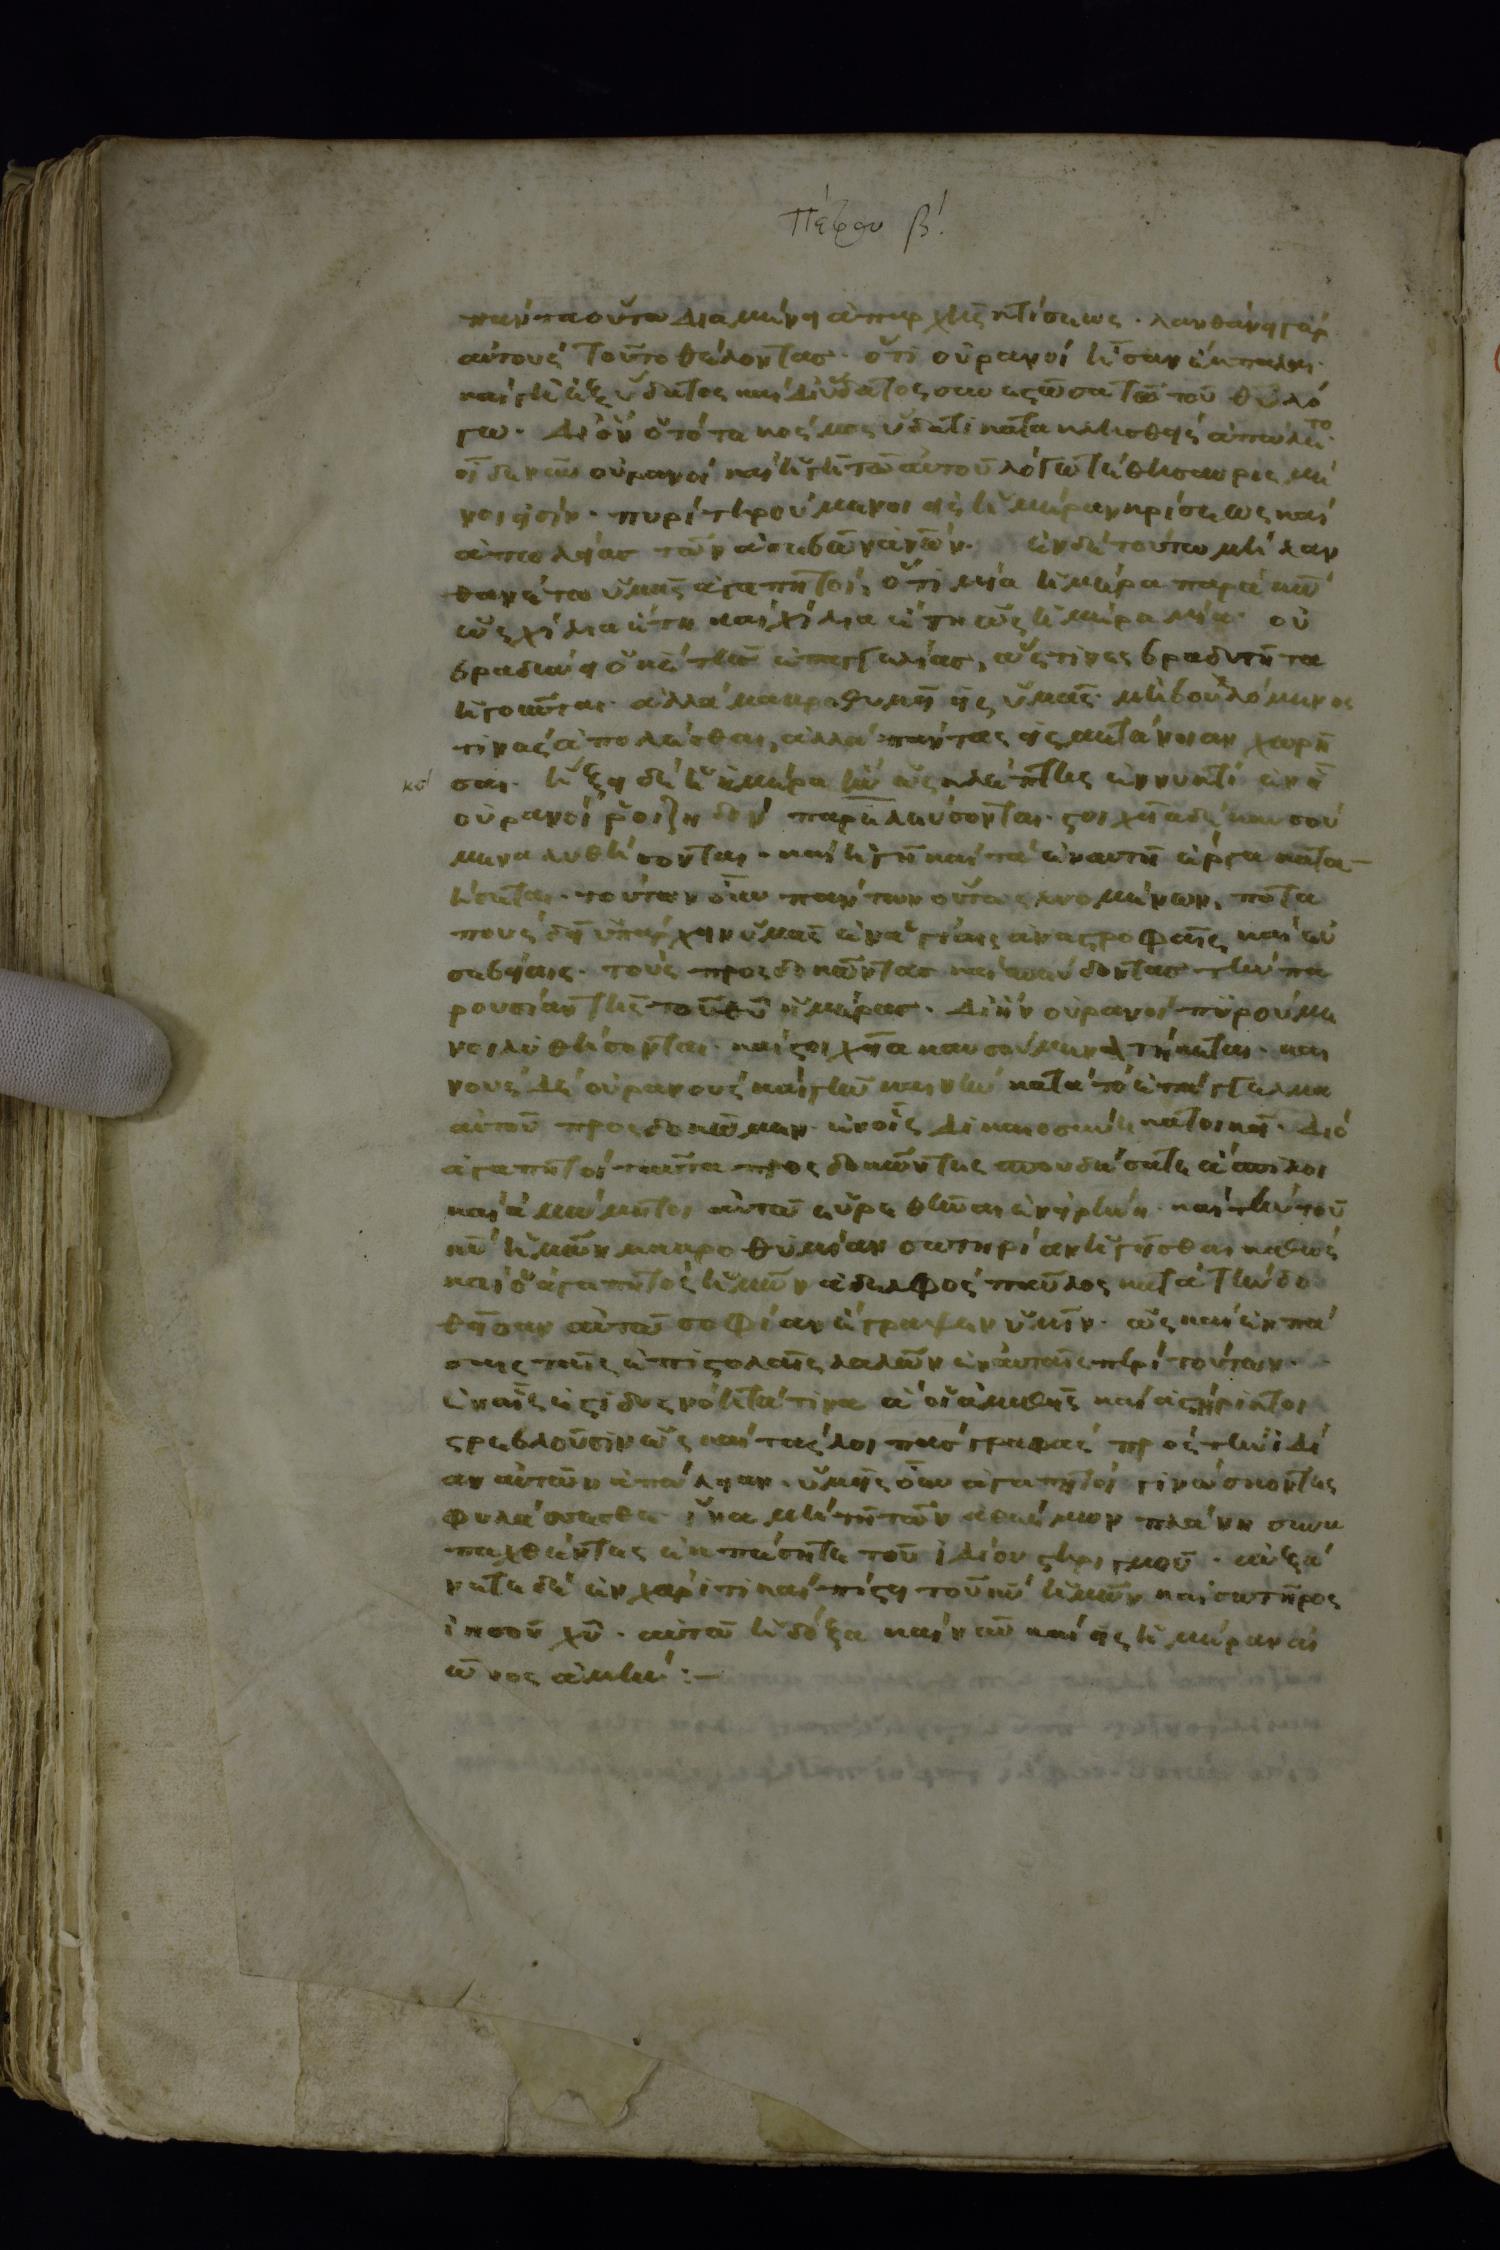 Πέτρου β΄.
πάντα οὕτω διαμένει ἀπαρχῆς κτίσεως · λανθάνει γὰρ
αὐτοὺς τοῦτο θέλοντας · ὅτι οὐρανοὶ ἦσαν ἔκπαλαι ·
καὶ γῆ ἐξ ὕδατος καὶ δι ὕδατος συνεστῶσα τῶ τοῦ θυ λό
γω · δι ὃν ὁ τότε κόσμος ὕδατι κατακλισθεὶς ἀπώλε
το
οἱ δὲ νῦν οὐρανοὶ καὶ ἡ γῆ τῶ αὐτοῦ λόγω τεθησαυρισμέ
νοι εἰσίν · πυρὶ τηρούμενοι εἰς ἡμέραν κρίσεως καὶ
ἀπωλείας τῶν ἀσεβῶν ἀνῶν · ἓν δὲ τοῦτο μὴ λαν
θανέτω ὑμᾶς ἀγαπητοί, ὅτι μία ἡμέρα παρὰ κω
ὡς χίλια ἔτη καὶ χίλια ἔτη ὡς ἡμέρα μία · οὐ
βραδύνει ὁ κς τῆς ἐπαγγελίας, ὥς τινες βραδυτῆτα
ἡγοῦνται · ἀλλὰ μακροθυμεῖ εἰς ὑμᾶς · μὴ βουλόμενος
τινὰς ἀπολέσθαι, ἀλλὰ πάντας εἰς μετάνοιαν χωρῆ
σαι · ἥξει δὲ ἡ ἡμέρα κυ ὡς κλέπτης ἐν νυκτὶ ἐν ἧ
οὐρανοὶ ῥοιζηδὸν παρελεύσονται · στοιχεῖα δὲ καυσού
μενα λυθήσονται · καὶ ἡ γῆ καὶ τὰ ἐν αυτῆ ἔργα κατα
ήσεται · τούτων οὖν πάντων οὕτως λυομένων, ποτα
ποὺς δεῖ ὑπάρχειν ὑμᾶς ἐν ἁγίαις ἀναστροφαῖς καὶ εὐ
σεβείαις · τοὺς προσδοκῶντας καὶ σπεύδοντας τὴν πα
ρουσίαν τῆς τοῦ θυ ἡμέρας · δι ἣν οὐρανοὶ πυρούμε
νοι λυθήσονται · καὶ στοιχεῖα καυσούμενα τήκεται · και
νοὺς δὲ οὐρανοὺς καὶ γῆν καινὴν κατὰ τὸ ἐπάγγελμα
αὐτοῦ προσδοκῶμεν · ἐν οἷς δικαιοσύνη κατοικεῖ · διὸ
ἀγαπητοὶ ταῦτα προσδοκῶντες σπουδάσατε ἄσπιλοι
καὶ ἀμώμητοι αὐτῶ εὑρεθῆναι ἐν εἰρήνη · καὶ τὴν τοῦ
κυ ἡμῶν μακροθυμίαν σωτηρίαν ἡγεῖσθαι καθὼς
καὶ ὁ ἀγαπητὸς ἡμῶν ἀδελφὸς παῦλος κατὰ τὴν δο
θεῖσαν αὐτῶ σοφίαν ἔγραψεν ὑμῖν · ὡς καὶ ἐν πά
σαις ταῖς ἐπιστολαῖς λαλῶν ἐν αυταῖς περὶ τούτων ·
ἐν αἷς ἐστὶ δυσνόητά τινα ἃ οἱ ἀμαθεῖς καὶ ἀστήρικτοι
στρεβλοῦσιν ὡς καὶ τὰς λοιπὰς γραφὰς πρὸς τὴν ἰδί
αν αὐτῶν ἀπώλειαν · ὑμεῖς οὖν ἀγαπητοὶ γινώσκοντες
φυλάσσεσθε ἵνα μὴ τῆ τῶν ἀθέσμων πλάνη συνα
παχθέντες ἐκπέσητε τοῦ ἰδίου στηριγμοῦ · αὐξά
νετε δὲ ἐν χάριτι καὶ πίστει τοῦ κυ ἡμῶν καὶ σωτῆρος
ἰησοῦ χυ · αὐτῶ ἡ δόξα καὶ νῦν καὶ εἰς ἡμέραν αἰ
ῶνος ἀμήν :—